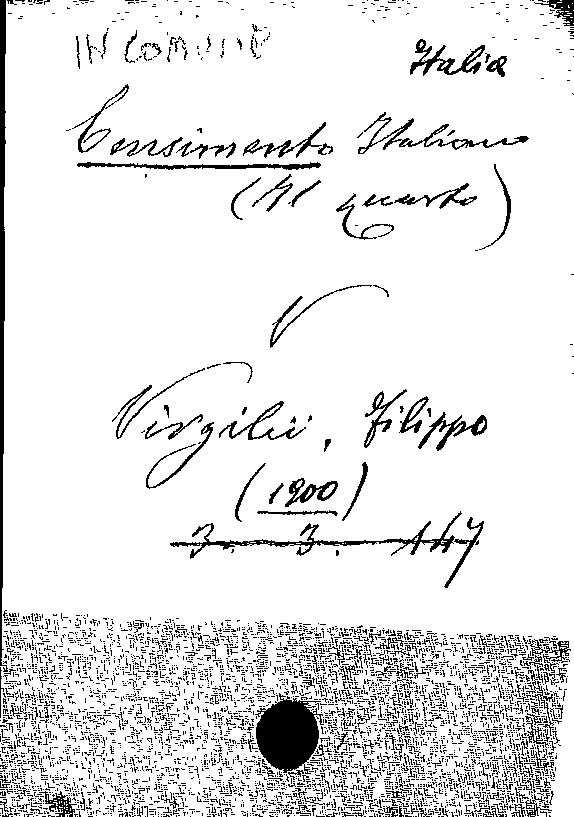 IN COMUNE
Italia
Censimento Italiano
(Il quarto)
V
Virgilii, Filippo
(1900)
3. 3. 147